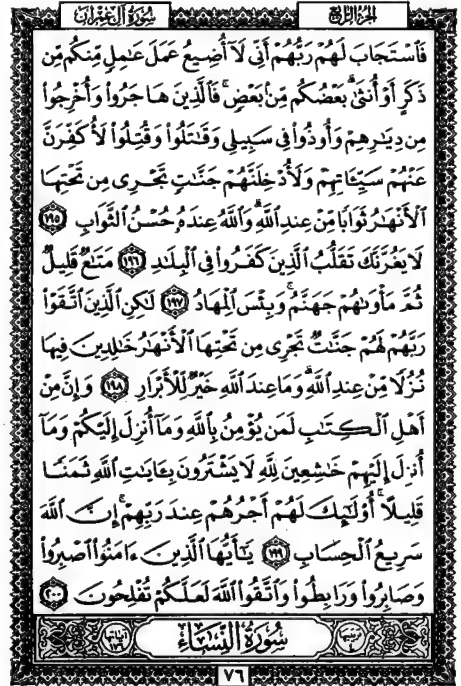 الجزء الرابع
سورة آل عمران
فَٱسْتَجَابَ لَهُمْ رَبُّهُمْ أَنِّى لَآ أُضِيعُ عَمَلَ عَٰمِلٍ مِّنكُم مِّن
ذَكَرٍ أَوْ أُنثَىٰ ۖ بَعْضُكُم مِّنۢ بَعْضٍ ۖ فَٱلَّذِينَ هَاجَرُوا۟ وَأُخْرِجُوا۟
مِن دِيَٰرِهِمْ وَأُوذُوا۟ فِى سَبِيلِى وَقَٰتَلُوا۟ وَقُتِلُوا۟ لَأُكَفِّرَنَّ
عَنْهُمْ سَيِّـَٔاتِهِمْ وَلَأُدْخِلَنَّهُمْ جَنَّٰتٍ تَجْرِى مِن تَحْتِهَا
ٱلْأَنْهَٰرُ ثَوَابًا مِّنْ عِندِ ٱللَّهِ ۗ وَٱللَّهُ عِندَهُۥ حُسْنُ ٱلثَّوَابِ ١٩٥
لَا يَغُرَّنَّكَ تَقَلُّبُ ٱلَّذِينَ كَفَرُوا۟ فِى ٱلْبِلَٰدِ ١٩٦ مَتَٰعٌ قَلِيلٌ
ثُمَّ مَأْوَىٰهُمْ جَهَنَّمُ ۚ وَبِئْسَ ٱلْمِهَادُ ١٩٧ لَٰكِنِ ٱلَّذِينَ ٱتَّقَوْا۟
رَبَّهُمْ لَهُمْ جَنَّٰتٌ تَجْرِى مِن تَحْتِهَا ٱلْأَنْهَٰرُ خَٰلِدِينَ فِيهَا
نُزُلًا مِّنْ عِندِ ٱللَّهِ ۗ وَمَا عِندَ ٱللَّهِ خَيْرٌ لِّلْأَبْرَارِ ١٩٨ وَإِنَّ مِنْ
أَهْلِ ٱلْكِتَٰبِ لَمَن يُؤْمِنُ بِٱللَّهِ وَمَآ أُنزِلَ إِلَيْكُمْ وَمَآ
أُنزِلَ إِلَيْهِمْ خَٰشِعِينَ لِلَّهِ لَا يَشْتَرُونَ بِـَٔايَٰتِ ٱللَّهِ ثَمَنًا
قَلِيلًا ۗ أُو۟لَٰٓئِكَ لَهُمْ أَجْرُهُمْ عِندَ رَبِّهِمْ ۗ إِنَّ ٱللَّهَ
سَرِيعُ ٱلْحِسَابِ ١٩٩ يَٰٓأَيُّهَا ٱلَّذِينَ ءَامَنُوا۟ ٱصْبِرُوا۟
وَصَابِرُوا۟ وَرَابِطُوا۟ وَٱتَّقُوا۟ ٱللَّهَ لَعَلَّكُمْ تُفْلِحُونَ ٢٠٠
ترتيبها ٤ سورة النساء آياتها ١٧٦
٧٦